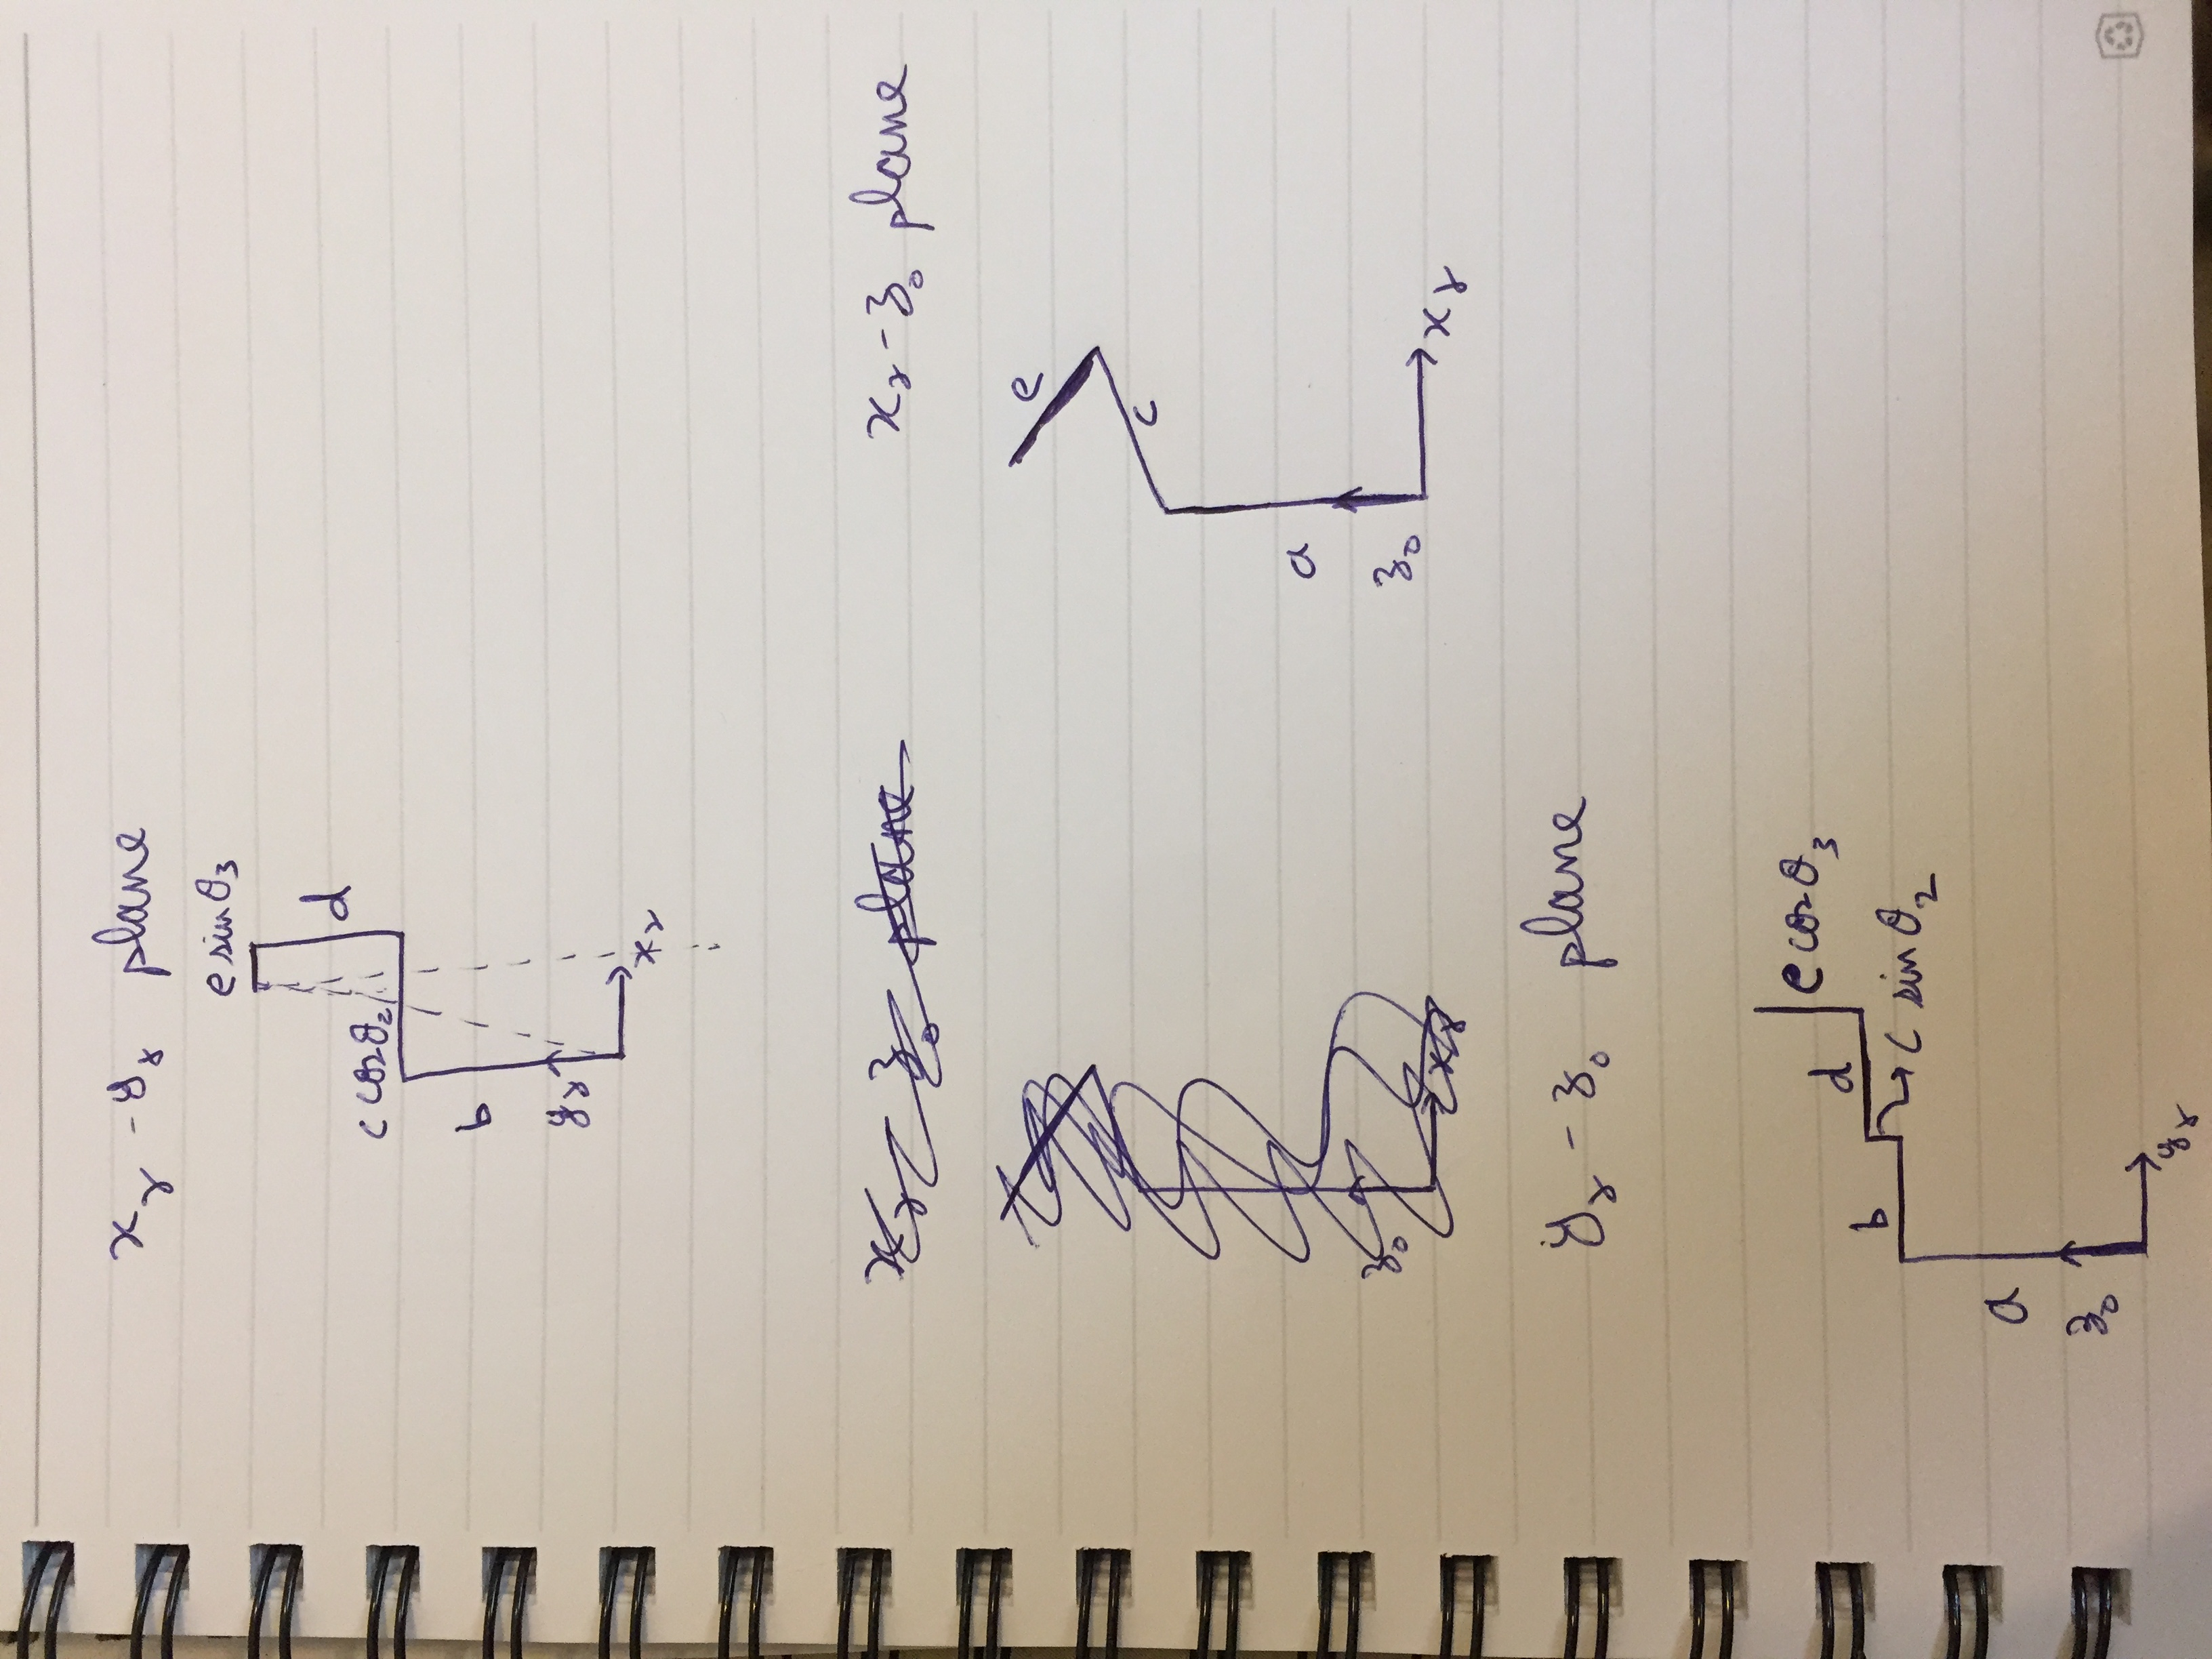 x_r - y_r plane
e sin θ_3
d
c cos θ_2
b
y_r
x_r
x_r - z_0 plane
x_r - z_0 plane
e
c
a
z_0
z_0
x_r
x_r
y_r - z_0 plane
e cos θ_3
d
b
c sin θ_2
a
z_0
y_r